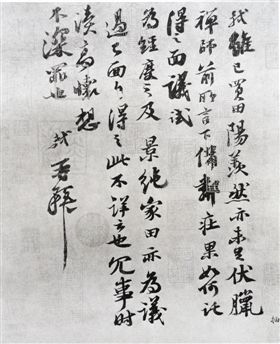 軾雖已買田陽羨然亦未足伏臘
禪師前所言下備鄰莊果如何託
得之面議試
為經度之及景純家田亦為議
過已面白得之此不詳云也冗事時
瀆高懷想
不深罪也 軾再拜